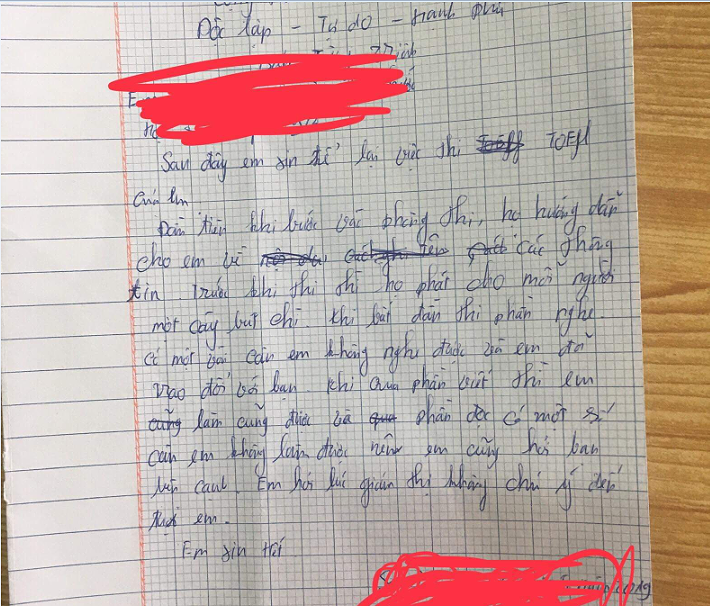 Độc lập - Tự do - Hạnh phú
Sau đây em xin kể lại việc thi TOEFl
của em
Đầu tiên khi bước vào phòng thi, họ hướng dẫn
cho em về các thông
tin. Trước khi thi thì họ phát cho mỗi người
một cây bút chì. khi bắt đầu thi phần nghe.
Có một vài câu em không nghe được và em đã
trao đổi với bạn. khi qua phần viết thì em
cũng làm cũng được và phần đọc có một số
câu em không làm được nên em cũng hỏi bạn
bên cạnh. Em hỏi lúc giám thị không chú ý đến
em.
Em xin hết